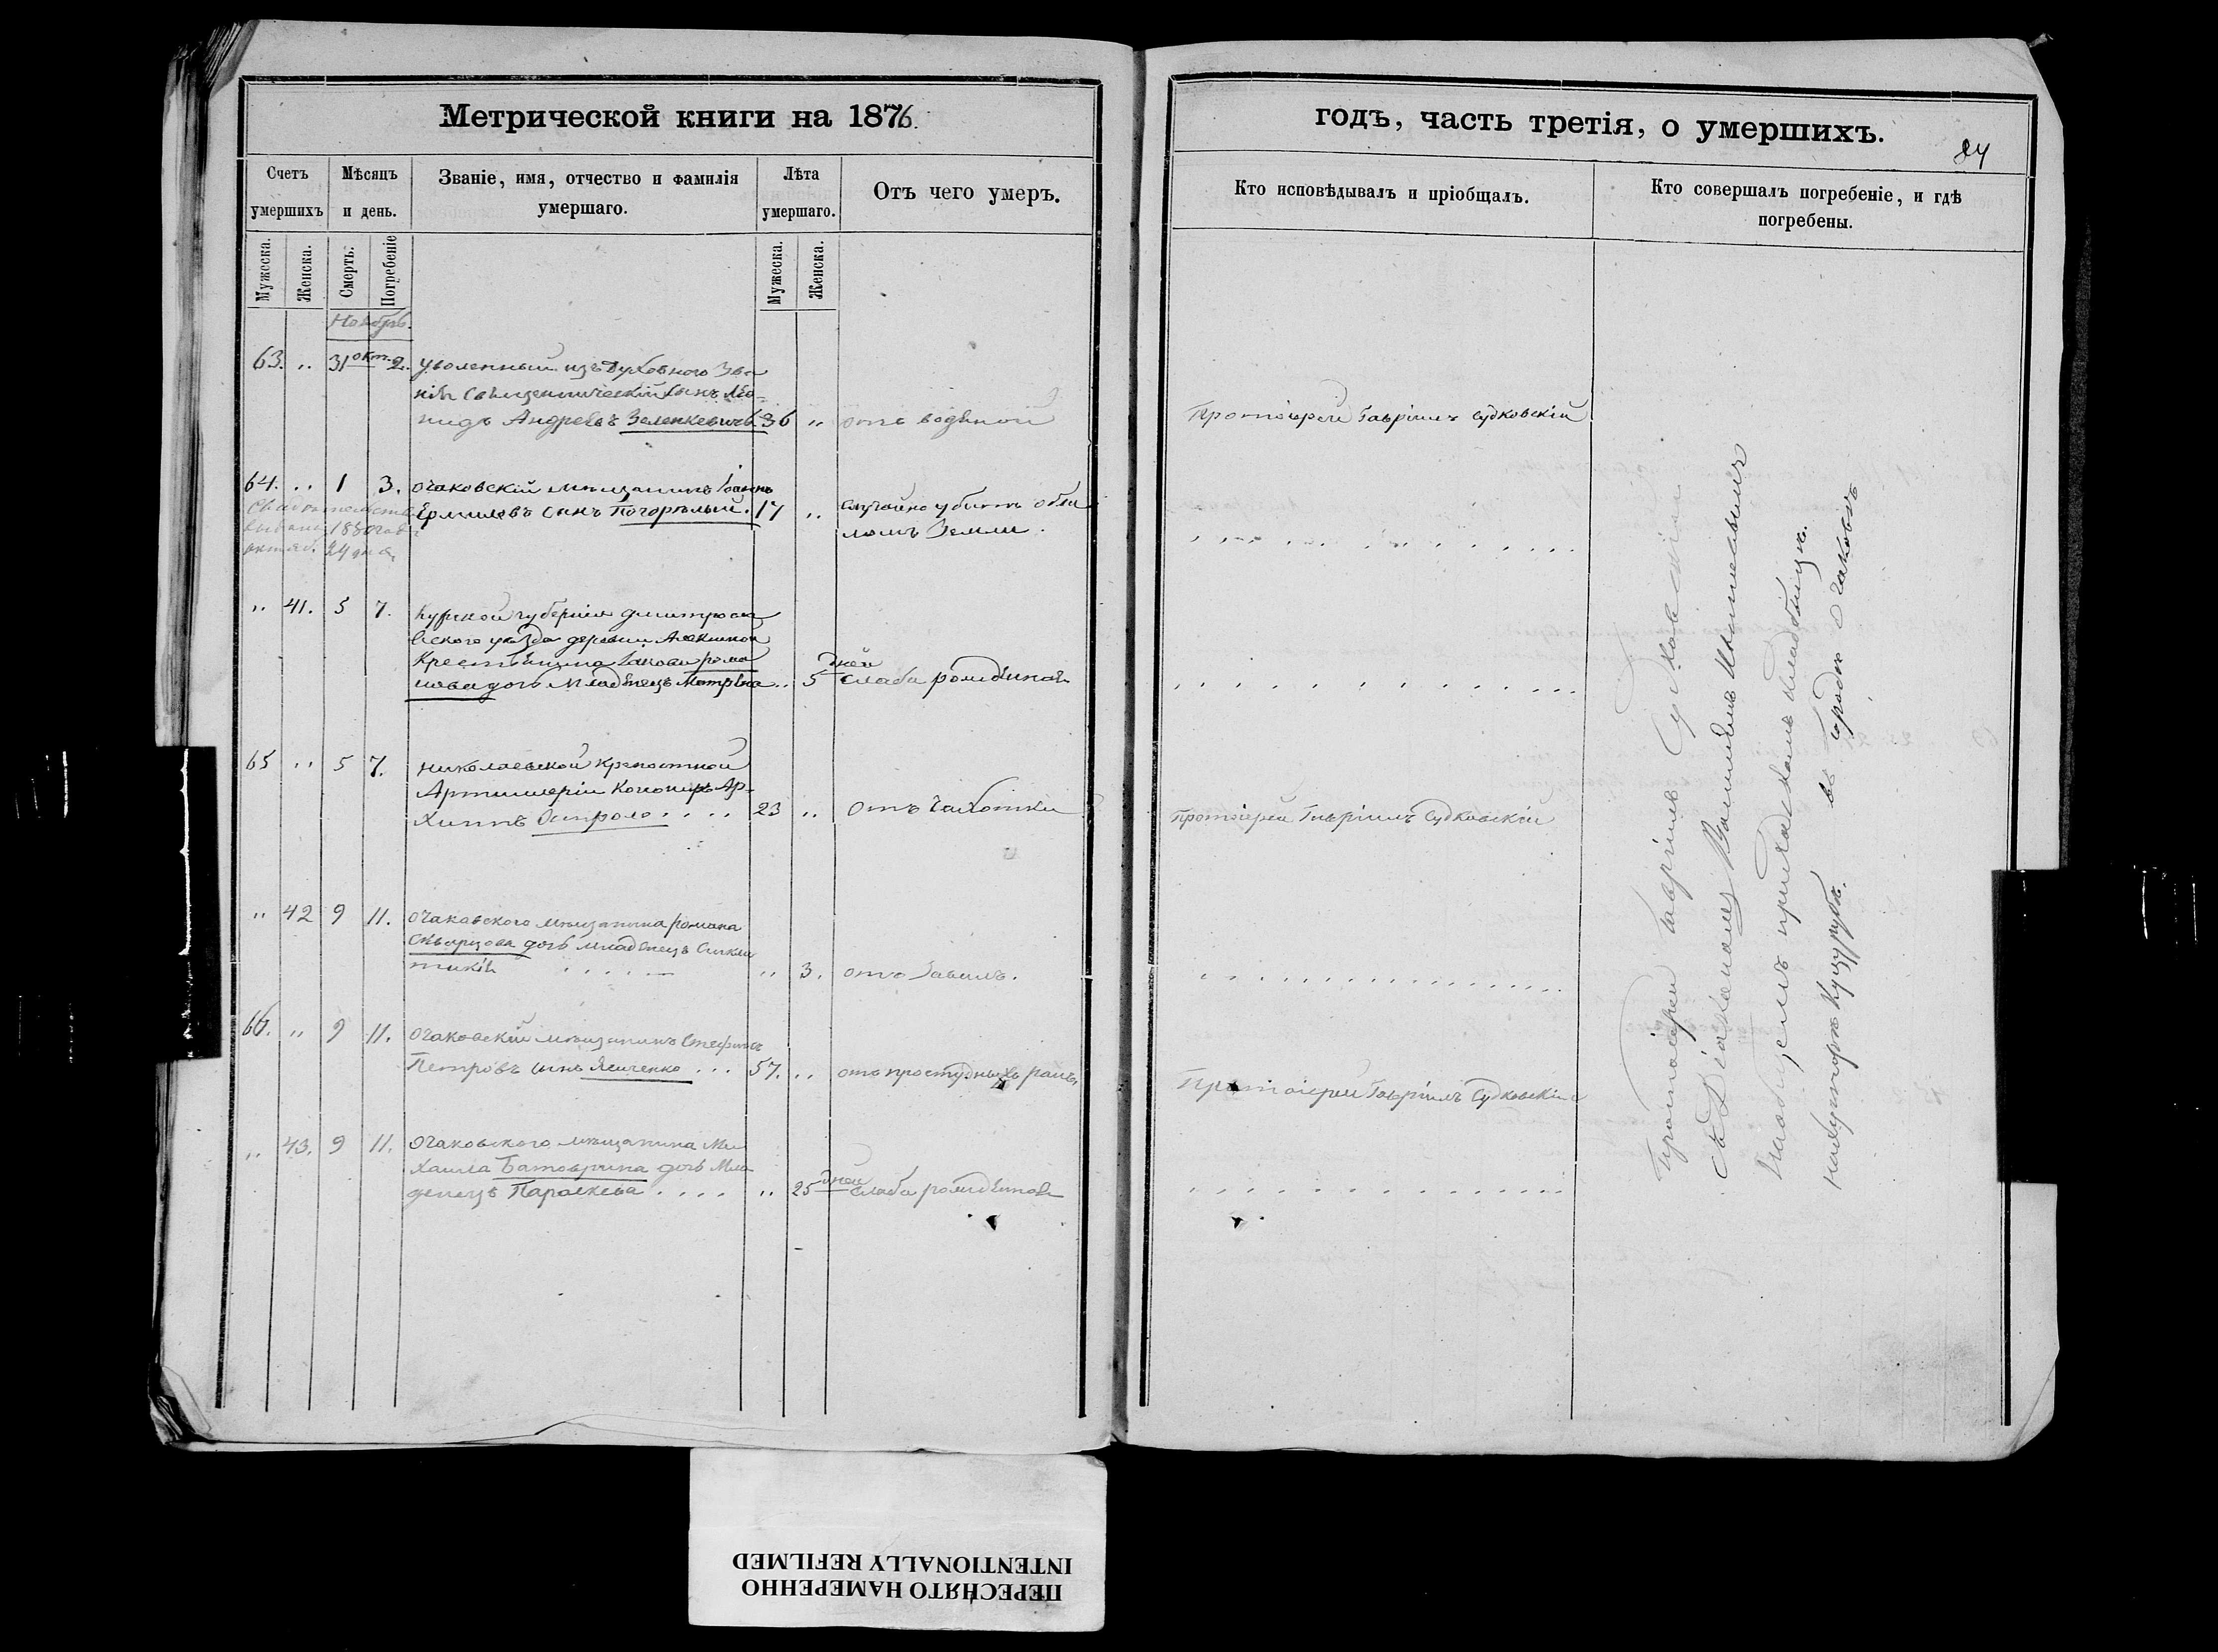 Метрической книги на 1876.
Счетъ умершихъ
Мѣсяцъ и день.
Званіе, имя, отчество и фамилія умершаго.
Лѣта умершаго.
Отъ чего умеръ.
Мужеска.
Женска.
Смерть.
Погребеніе
Мужеска.
Женска.
Ноябрь.
63. „ 31 окт. 2. уволенный изъ Духовного Зва
нія Священническій сынъ Лео-
нидъ Андреевъ Зеленкевичъ. 36 „ отъ водяной
64. „ 1 3. Очаковскій мѣщанинъ Іоаннъ
Ермиловъ сынъ Погорѣлый. 17 „ случайно убитъ обва
ломъ Земли.
Свидѣтельство
выдано 1880 года
октяб. 24 дня
„ 41. 5 7. Курской губерніи Дмитров
вского уѣзда деревни
Крестьянина Іакова Рома
нова дочь Младенецъ Матрона „ 5 дней Слаба рожденная
65 „ 5 7. Николаевской крепостной
Артиллеріи Канониръ Ар-
хиппъ 23 „ Отъ Чахотки
„ 42 9 11. Очаковского мѣщанина Романа
Скворцова дочь младенецъ Синкли
тикія „ 3. отъ
66. „ 9 11. Очаковскій мѣщанинъ Стефанъ
Петровъ сынъ Ященко 57. „ отъ простудныхъ ранъ.
„ 43. 9 11. Очаковского мѣщанина Ми
хаила дочь Мла
денецъ Параскева „ 25 дней Слаба рожденная
годъ, часть третія, о умершихъ.
84
Кто исповѣдывалъ и пріобщалъ.
Кто совершалъ погребеніе, и гдѣ погребены.
Протоіерей Гавріилъ Судковскій
Протоіерей Гавріилъ Судковскій
Протоіерей Гавріилъ Судковскій
Протоіерей Гавріилъ Судковскій
съ Діакономъ
на приходскомъ кладбищѣ.
въ городѣ Очаковѣ
ПЕРЕСНЯТО НАМЕРЕННО
INTENTIONALLY REFILMED